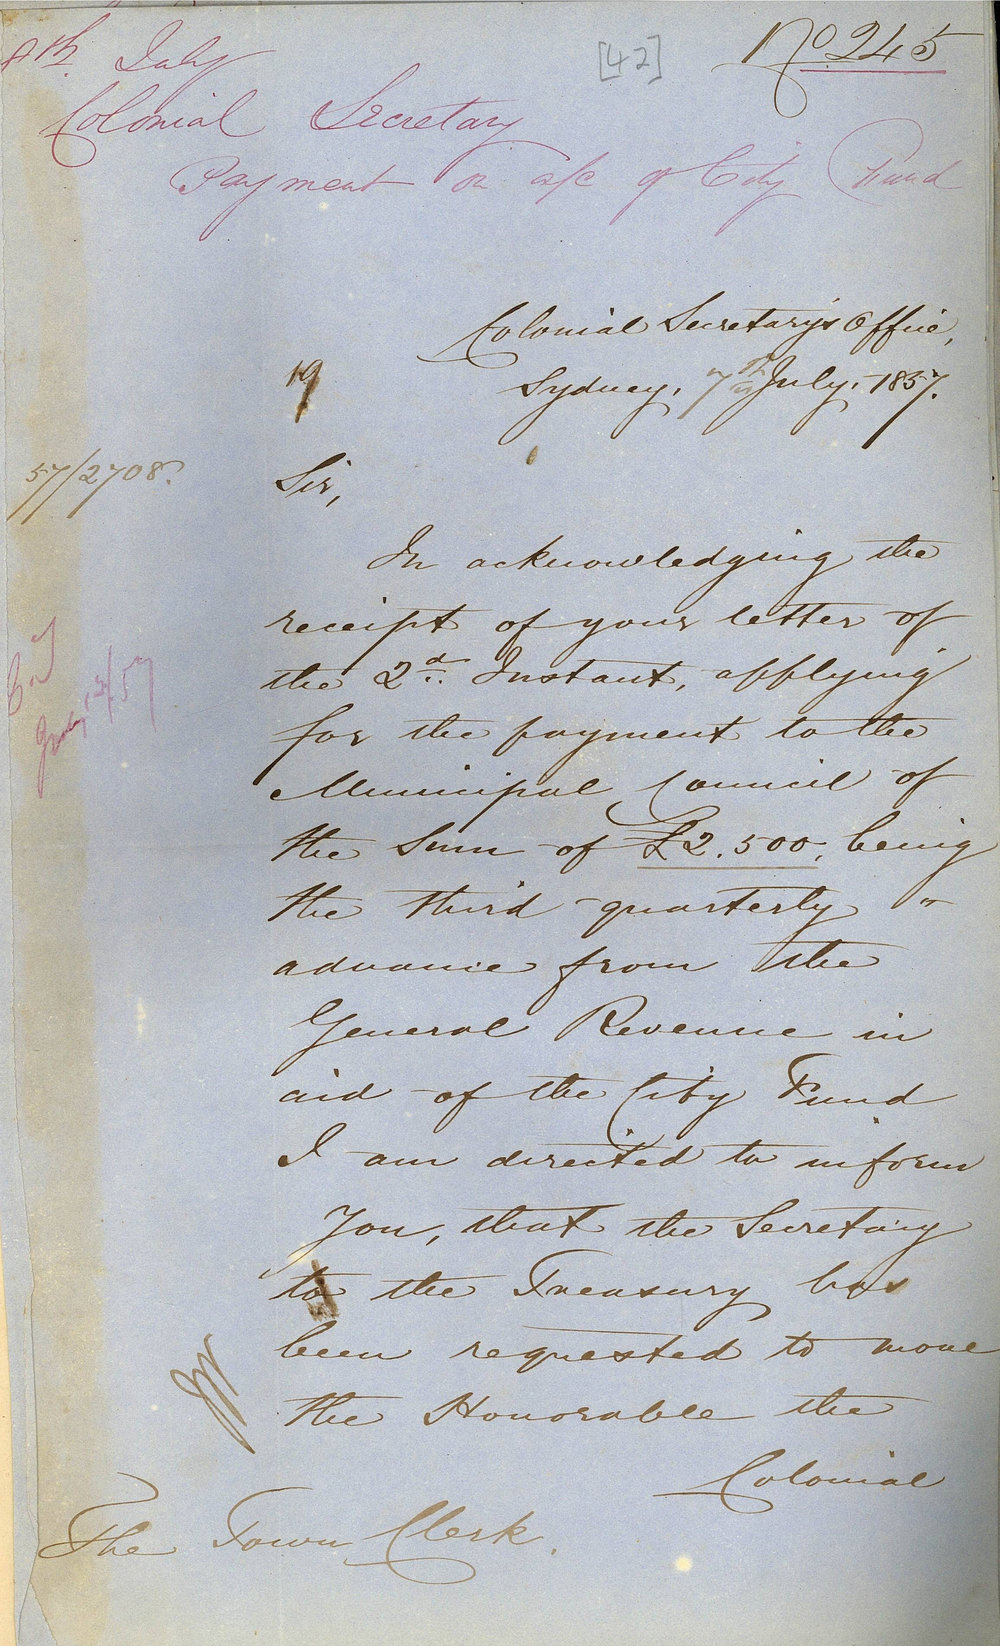 8th July
[42]
No. 245
Colonial Secretary
Payment on a/c of City Fund
Colonial Secretary's Office,
19
Sydney, 7th July, 1857.
57/2708.
Sir,
In acknowledging the
receipt of your letter of
the 2d. Instant, applying
for the payment to the
Municipal Council of
the Sum of £2.500, being
the third quarterly "
advance from the
General Revenue in
aid of the City Fund
I am directed to inform
You, that the Secretary
to the Treasury has
been requested to move
the Honorable the
Colonial
The Town Clerk.